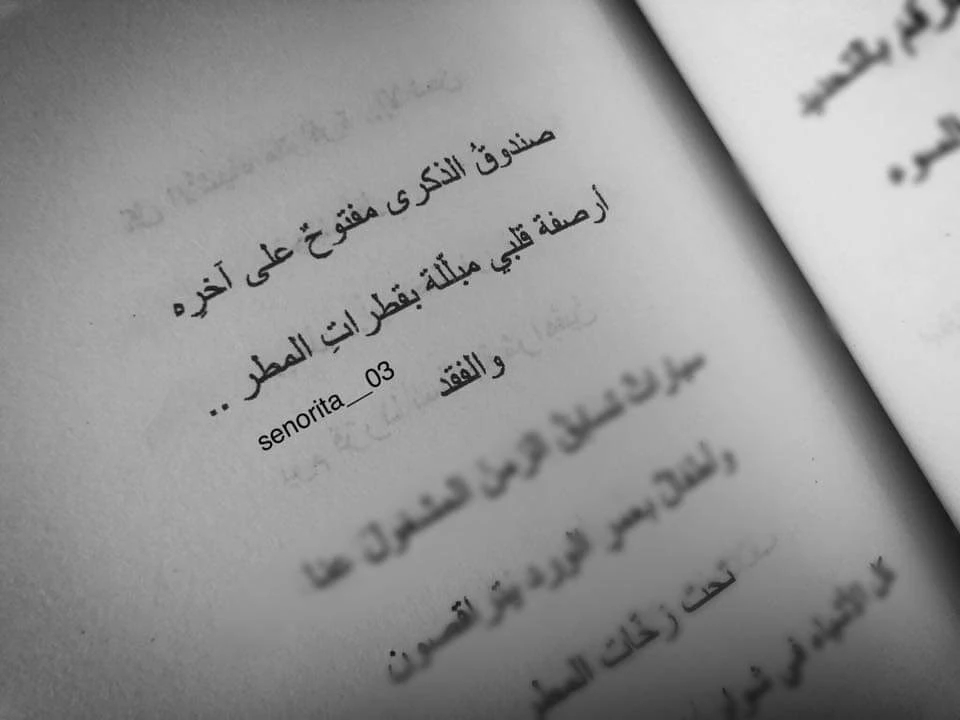 صندوقُ الذكرى مفتوحٌ على آخرِه
أرصفة قلبي مبلّلة بقطراتِ المطر ..
والفقد
senorita__03
سيارات تسابق الزمن المشغول عنا
وأطفال بعمر الورد يتراقصون
تحت زخّات المطر
كل الأشياء في
رقم بالتحديد
السوء